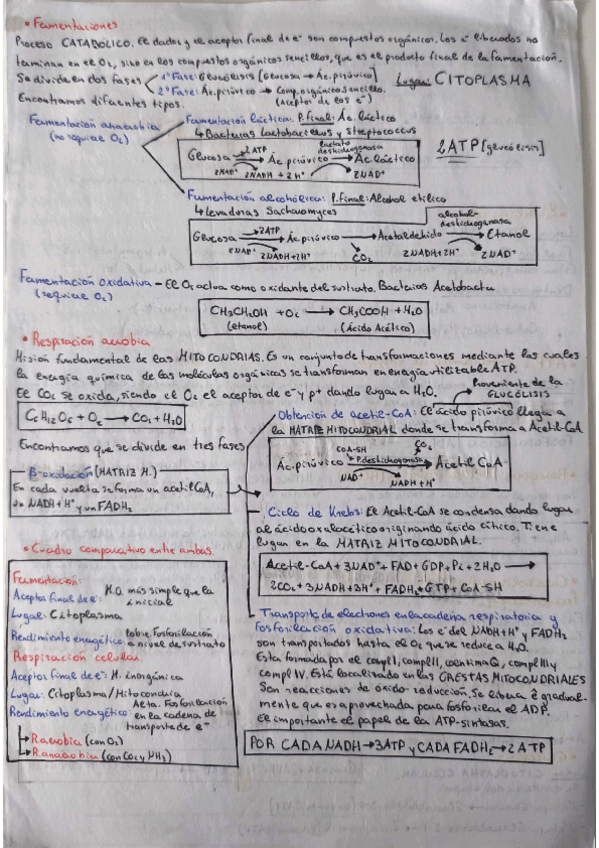 • Fermentaciones
Proceso CATABÓLICO. El dador y el aceptor final de e⁻ son compuestos orgánicos. Los e⁻ liberados no
terminan en el O₂, sino en los compuestos orgánicos sencillos, que es el producto final de la fermentación.
Se divide en dos fases
1ª Fase: Glucólisis [Glucosa → Ác. pirúvico]
2ª Fase: Ác. pirúvico → Comp. orgánico sencillo.
(aceptor de los e⁻)
Lugar: CITOPLASMA
Encontramos diferentes tipos.
Fermentación anaerobia
(no requiere O₂)
Fermentación láctica: P. final: Ác. láctico
↳ Bacterias Lactobacillus y Streptococcus
Glucosa → Ác. pirúvico → Ác. láctico
2 ATP
lactato
deshidrogenasa
2NAD⁺ 2NADH + 2H⁺ 2NAD⁺
2 ATP [glucólisis]
Fermentación alcohólica: P. final: Alcohol etílico
↳ Levaduras Sacharomyces
alcohol-
deshidrogenasa
2ATP
Glucosa → Ác. pirúvico → Acetaldehido → Etanol
2NAD⁺ 2NADH+2H⁺ CO₂ 2NADH+2H⁺ 2NAD⁺
Fermentación oxidativa – El O₂ actua como oxidante del sustrato. Bacterias Acetobacter
(requiere O₂)
CH₃CH₂OH + O₂ → CH₃COOH + H₂O
(etanol) (Ácido Acético)
• Respiración aerobia
Misión fundamental de las MITOCONDRIAS. Es un conjunto de transformaciones mediante las cuales
la energía química de las moléculas orgánicas se transforman en energía utilizable ATP.
El CO₂ se oxida, siendo el O₂ el aceptor de e⁻ y p⁺ dando lugar a H₂O.
Proveniente de la
GLUCÓLISIS
C₆H₁₂O₆ + O₂ → CO₂ + H₂O
Obtención de acetil-CoA: El ácido pirúvico llega a
la MATRIZ MITOCONDRIAL donde se transforma a Acetil-CoA.
Encontramos que se divide en tres fases
COA-SH CO₂
P. deshidrogenasa
Ác. pirúvico → Acetil CoA
NAD⁺ NADPH + H⁺
β-oxidación (MATRIZ M.)
En cada vuelta se forma un acetil CoA,
un NADH+H⁺ y un FADH₂
Ciclo de Krebs: El Acetil-CoA se condensa dando lugar
al ácido oxalacético originando ácido cítrico. Tiene
lugar en la MATRIZ MITOCONDRIAL.
Acetil-CoA + 3NAD⁺ + FAD + GDP + Pi + 2H₂O →
2CO₂ + 3NADH + 3H⁺ + FADH₂ + GTP + CoA-SH
• Cuadro comparativo entre ambas.
Fermentación:
Aceptor final de e⁻: M.O. más simple que la
inicial
Lugar: Citoplasma
Rendimiento energético: Pobre. Fosforilación
a nivel de sustrato
Respiración celular.
Aceptor final de e⁻: M. inorgánica
Lugar: Citoplasma / Mitocondria
Rendimiento energético: Alta. Fosforilación
en la cadena de
transporte de e⁻
→ R. aerobia (con O₂)
→ R. anaerobia (con CO₂ y NH₃)
Transporte de electrones en la cadena respiratoria y
fosforilación oxidativa: Los e⁻ del NADH+H⁺ y FADH₂
son transportados hasta el O₂ que se reduce a H₂O.
Esta formada por el compl I, compl II, coenzima Q, compl III y
compl IV. Está localizada en las CRESTAS MITOCONDRIALES
Son reacciones de óxido-reducción. Se libera E gradual-
mente que es aprovechada para fosforilar el ADP.
El importante el papel de la ATP-sintasas.
POR CADA NADH → 3ATP y CADA FADH₂ → 2 ATP